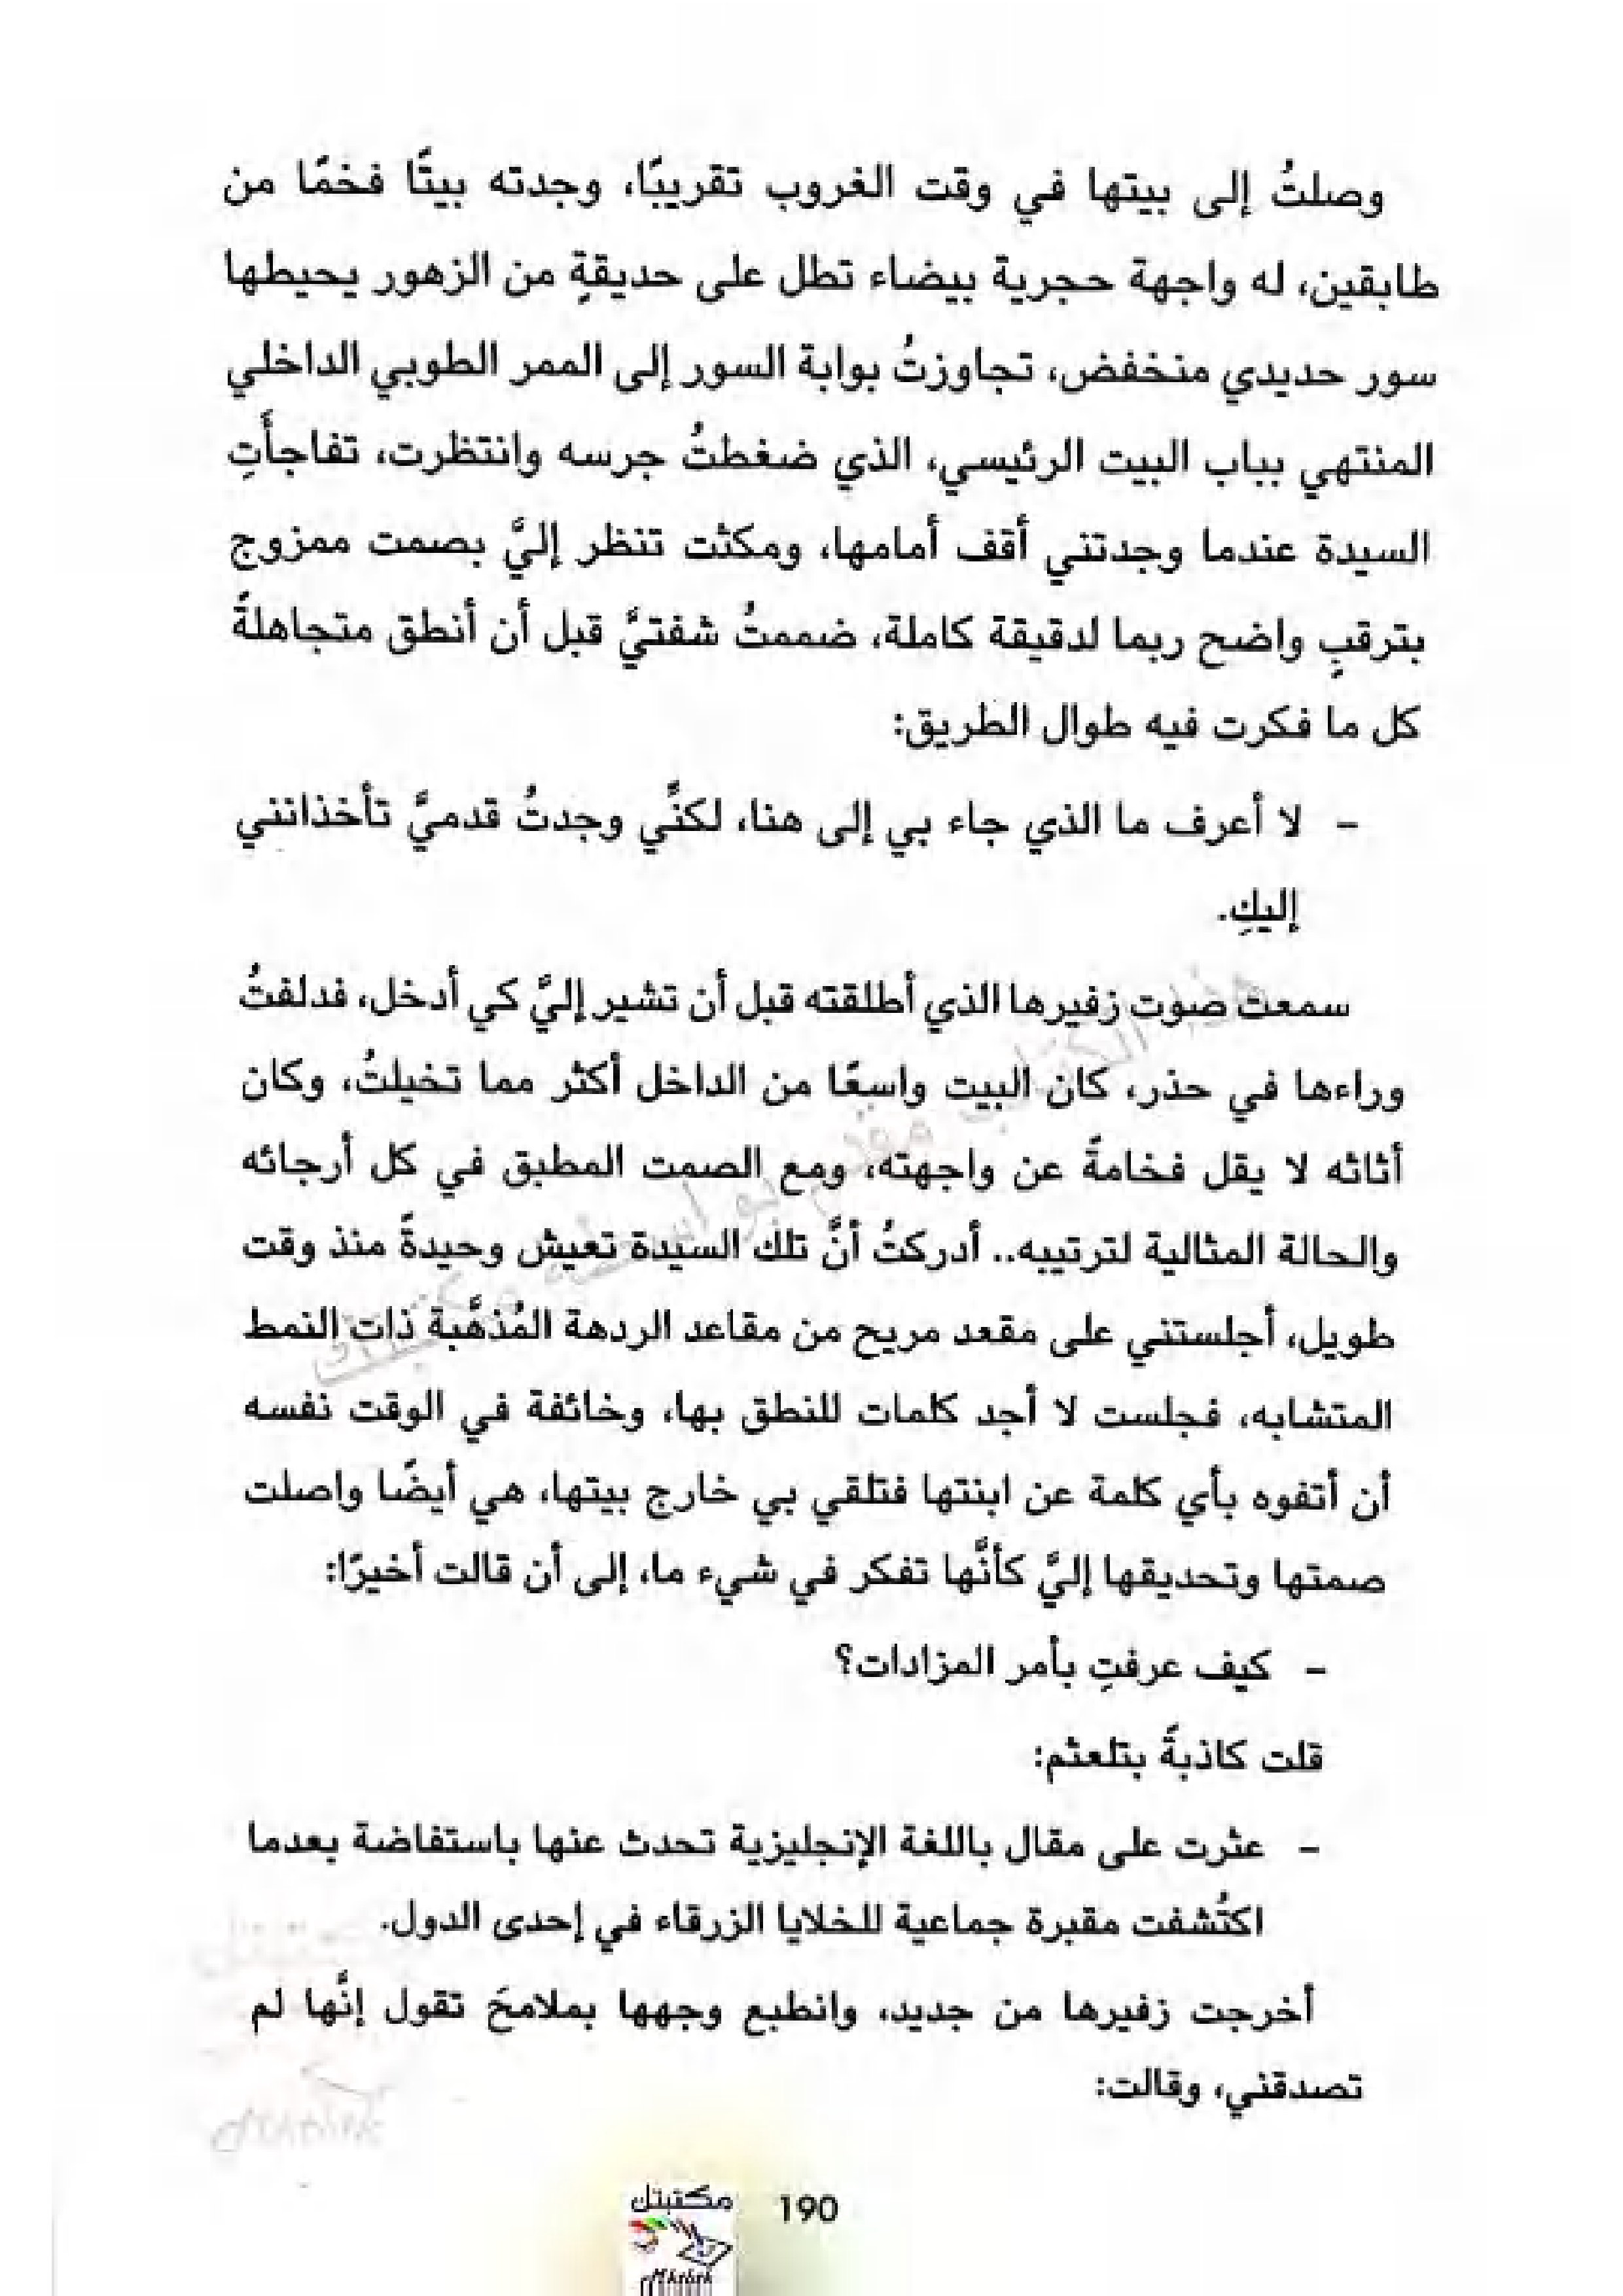 وصلتُ إلى بيتها في وقت الغروب تقريبًا، وجدته بيتًا فخمًا من
طابقين، له واجهة حجرية بيضاء تطل على حديقةٍ من الزهور يحيطها
سور حديدي منخفض، تجاوزتُ بوابة السور إلى الممر الطوبي الداخلي
المنتهي بباب البيت الرئيسي، الذي ضغطتُ جرسه وانتظرت، تفاجأَتِ
السيدة عندما وجدتني أقف أمامها، ومكثت تنظر إليَّ بصمت ممزوج
بترقبٍ واضح ربما لدقيقة كاملة، ضممتُ شفتيَّ قبل أن أنطق متجاهلةً
كل ما فكرت فيه طوال الطريق:
- لا أعرف ما الذي جاء بي إلى هنا، لكنَّي وجدتُ قدميَّ تأخذانني
إليكِ.
سمعت صوت زفيرها الذي أطلقته قبل أن تشير إليَّ كي أدخل، فدلفتُ
وراءها في حذر، كان البيت واسعًا من الداخل أكثر مما تخيلتُ، وكان
أثاثه لا يقل فخامةً عن واجهته، ومع الصمت المطبق في كل أرجائه
والحالة المثالية لترتيبه.. أدركتُ أنَّ تلك السيدة تعيش وحيدةً منذ وقت
طويل، أجلستني على مقعد مريح من مقاعد الردهة المُذهَّبة ذات النمط
المتشابه، فجلست لا أجد كلمات للنطق بها، وخائفة في الوقت نفسه
أن أتفوه بأي كلمة عن ابنتها فتلقي بي خارج بيتها، هي أيضًا واصلت
صمتها وتحديقها إليَّ كأنَّها تفكر في شيء ما، إلى أن قالت أخيرًا:
- كيف عرفتِ بأمر المزادات؟
قلت كاذبةً بتلعثم:
- عثرت على مقال باللغة الإنجليزية تحدث عنها باستفاضة بعدما
اكتُشفت مقبرة جماعية للخلايا الزرقاء في إحدى الدول.
أخرجت زفيرها من جديد، وانطبع وجهها بملامحَ تقول إنَّها لم
تصدقني، وقالت:
190
مكتبتك